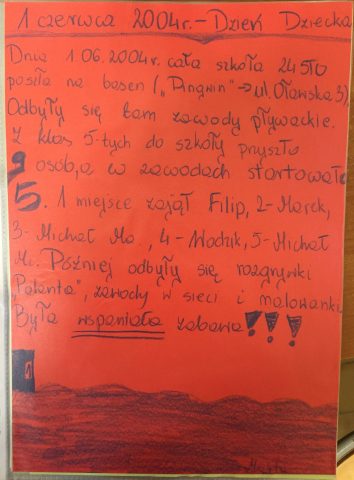 1 czerwca 2004r. - Dzień Dziecka
Dnia 1.06.2004r. cała szkoła 245tō
poszła na basen („Pingwin" → ul. Oławska 3),
Odbyły się tam zawody pływackie.
Z klas 5-tych do szkoły przyszło
9 osób, a w zawodach startowało
5. 1 miejsce zajął Filip, 2- Marek,
3- Michał Ma., 4- Wodzik, 5- Michał
Mi. Później odbyły się rozgrywki
„Palanta", zawody w sieci i malowanki.
Była wspaniała zabawa!!!
1